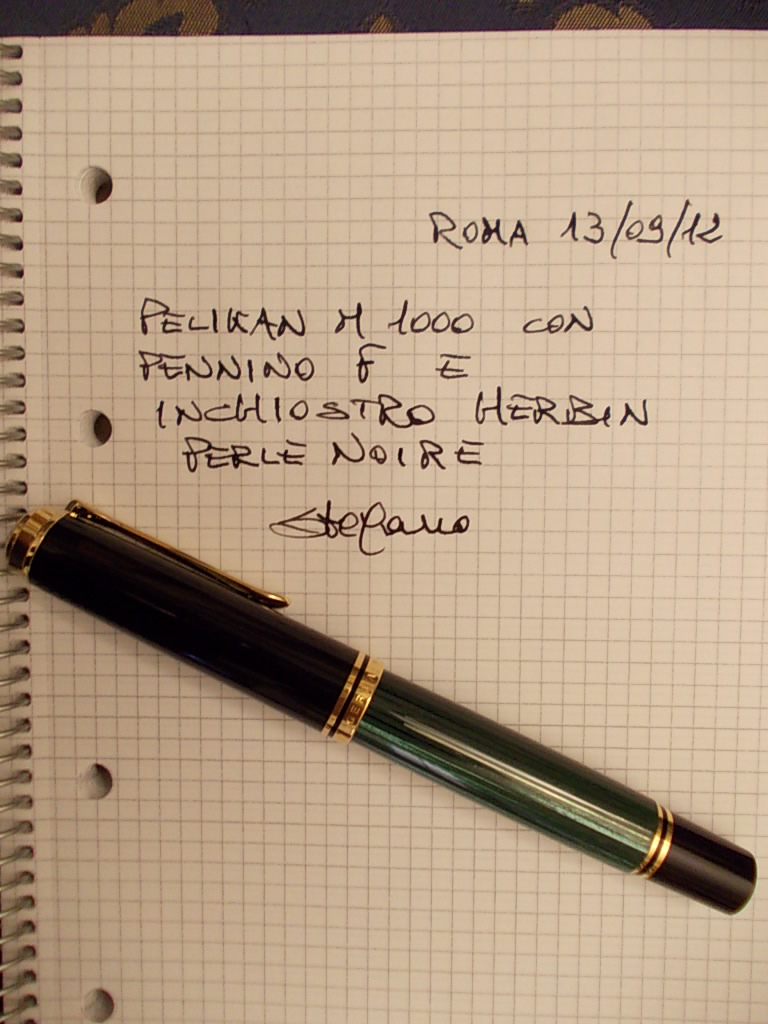 ROMA 13/09/12
PELIKAN M 1000 CON
PENNINO F E
INCHIOSTRO HERBIN
PERLE NOIRE
Stefano